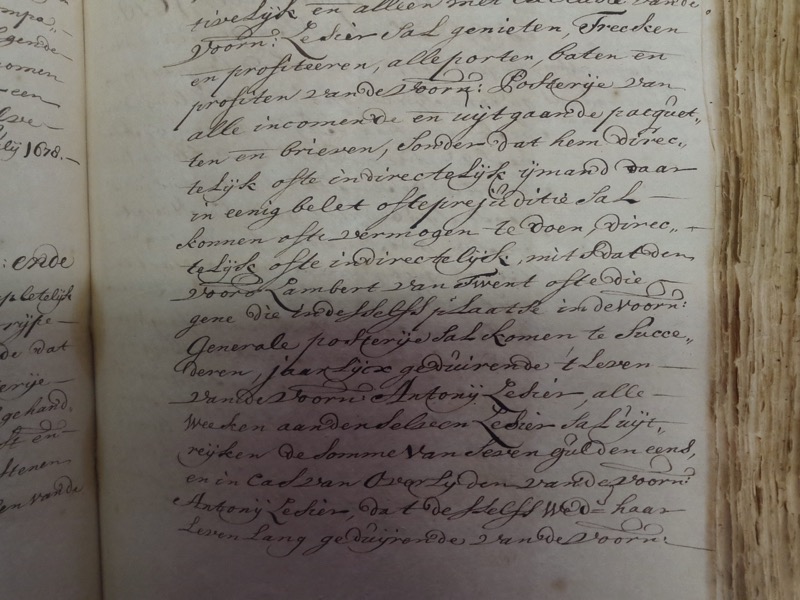 mpo„
gende
omen
een
lve
lij 1678.
: ende
pletelijk
rijpe
de dat
erije
gehand.
st en
ttenen
en vande
tivelijk en alleen met exclusie vande
Voorn: Lesier sal genieten, Trecken
en profiteeren, alle porten, baten en
profiten vande Voorn: Posterije van
alle incomende en uijtgaande pacquet„
ten en brieven, sonder dat hem direc„
telijk ofte indirectelijk ijmand daar
in eenig belet ofte prejuditie sal
konnen ofte vermogen te doen, direc„
telijk ofte indirectelijk, mits dat den
voorn Lambert van Twent ofte die
gene die in desselfs plaatse in de voorn:
Generale posterije sal komen te Succe„
deren, jaarlijcx geduirende 't Leven
vande Voorn: Antonij Lesier, alle
Weeken aanden selven Lesier sal uijt„
reijken de somme van seven gulden eens,
en in cas van Overlijden vande voorn:
Antonij Lesier, dat desselfs Wed= haar
Leven Lang geduijrende vande Voorn: